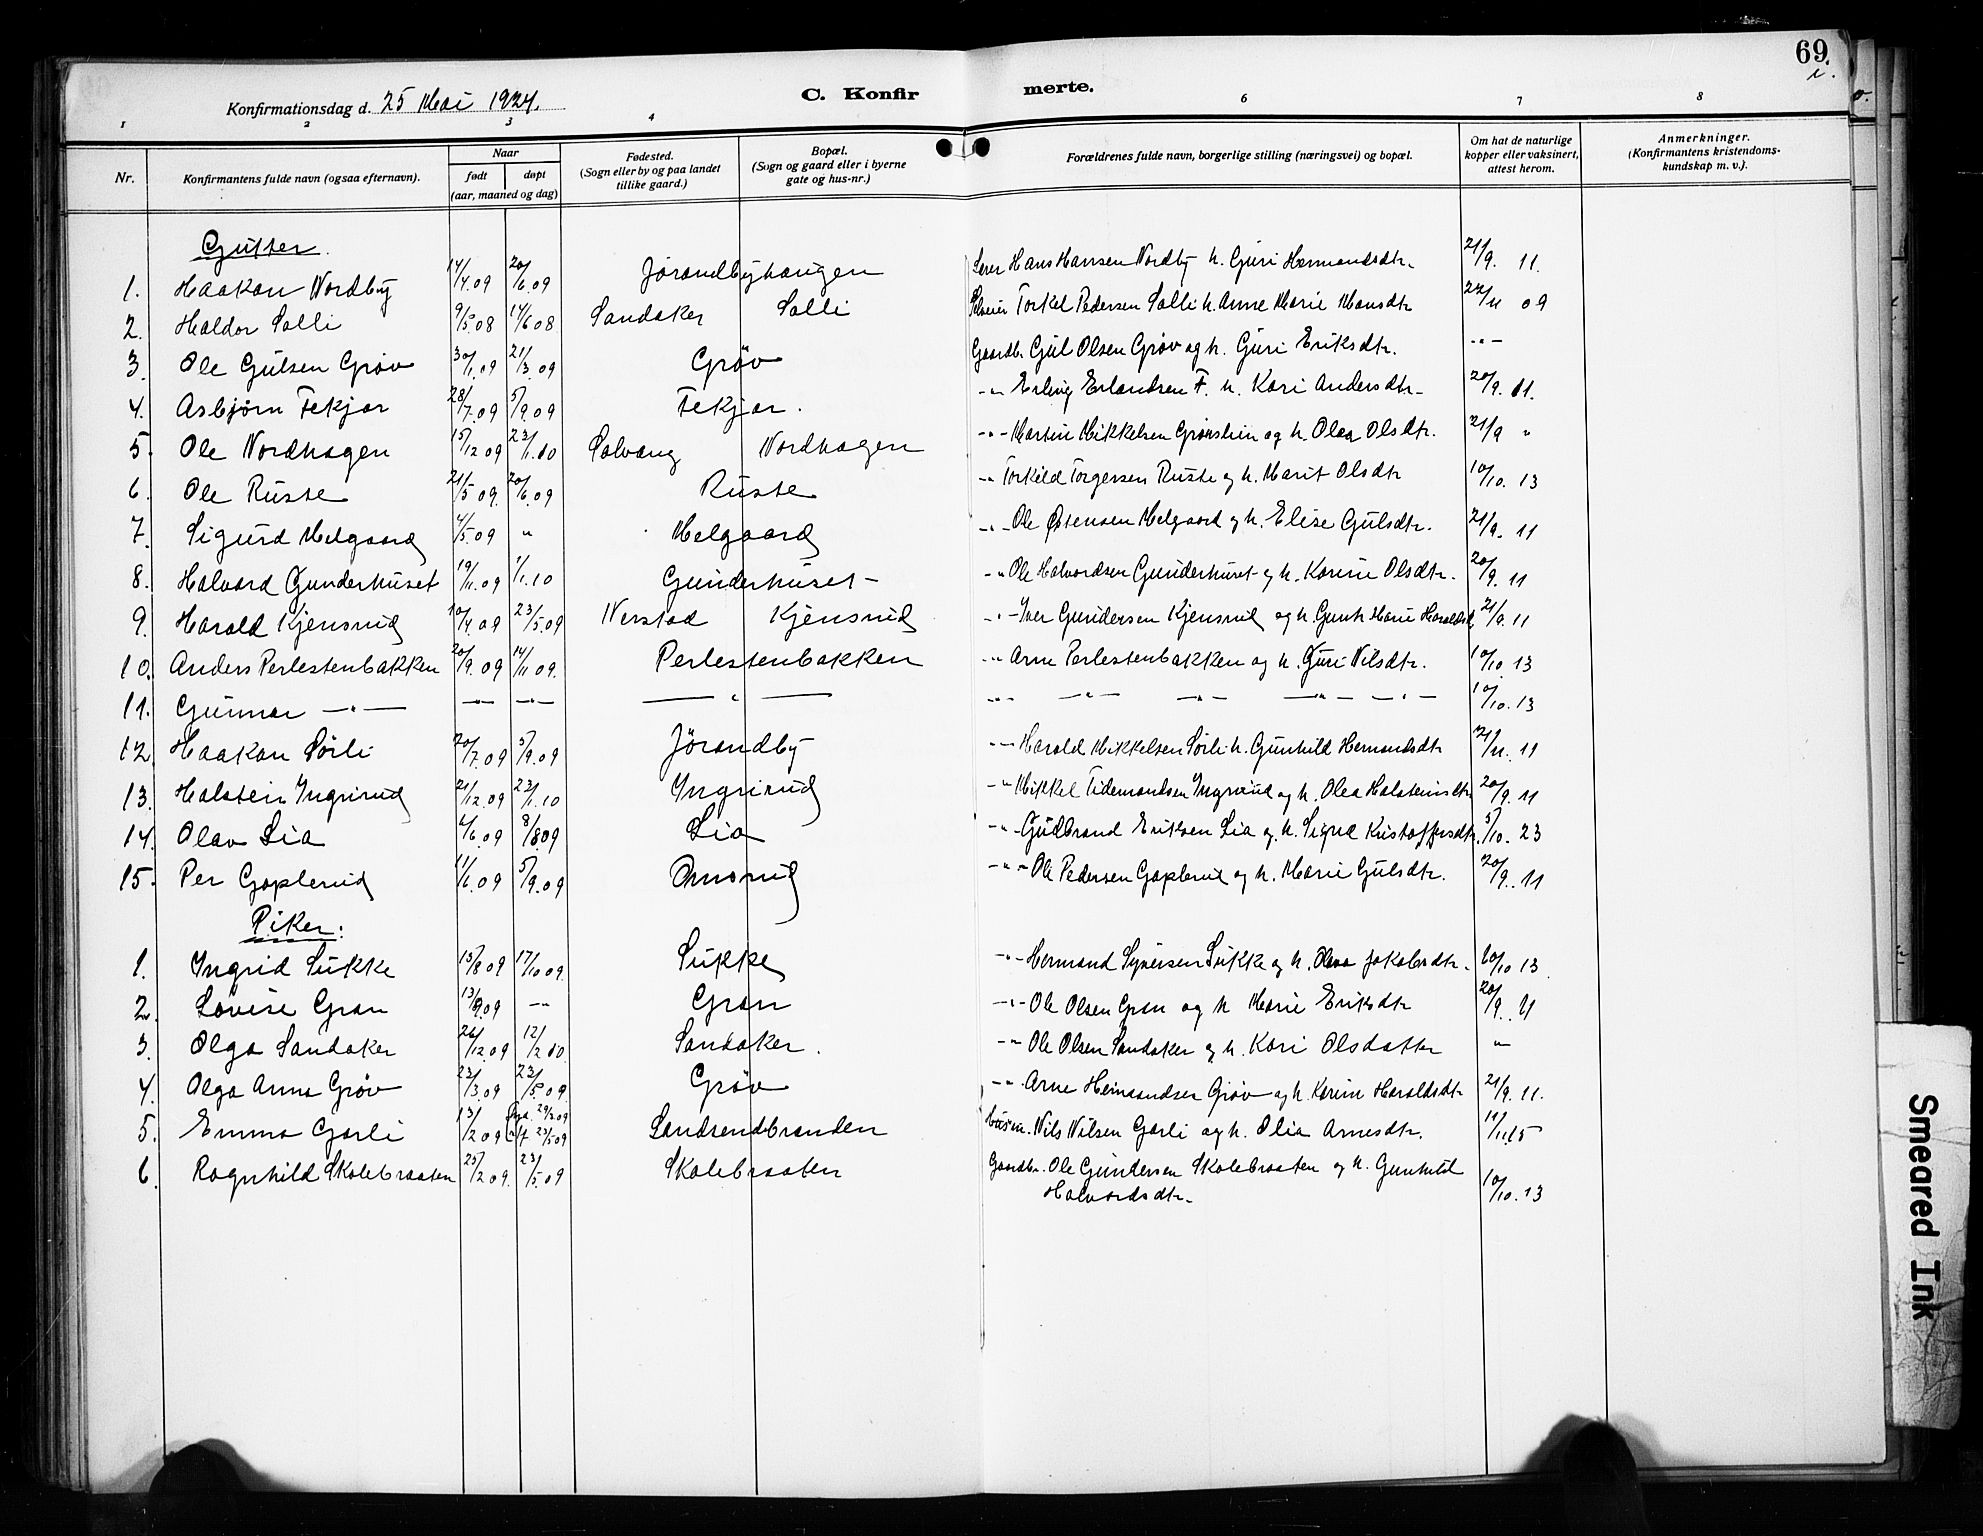 69
i.
Konfirmationsdag d. 25 Mai 1924.
C. Konfirmerte.
1 2 3 4 6 7 8
Nr. Konfirmantens fulde navn (ogsaa efternavn). Naar født døpt (aar, maaned og dag) Fødested. (Sogn eller by og paa landet tillike gaard.) Bopæl. (Sogn og gaard eller i byerne gate og hus-nr.) Forældrenes fulde navn, borgerlige stilling (næringsvei) og bopæl. Om hat de naturlige kopper eller vaksinert, attest herom. Anmerkninger. (Konfirmantens kristendoms-kundskap m. v.).
Gutter.
1. Haakon Nordby 14/4.09 20/6.09 Jørandbyhaugen Hans Hansen Nordby h. Guri Hermandsdtr. 21/9. 11.
2. Haldor Solli 9/5.08 14/6 08 Sandaker Solli Torkel Pedersen Solli h. Anne Marie Hansdtr 22/11 09
3. Ole Gulsen Grøv 30/1.09 21/3.09 Grøv Gaardb. Gul Olsen Grøv og h. Guri Eriksdtr. -"-
4. Asbjørn Fekjar 28/7.09 5/9.09 Fekjar. -"- Erling Erlandsen F. h. Kari Andersdtr. 20/9. 11.
5. Ole Nordhagen 15/12 09 23/1.10 Solvang Nordhagen -"- Martin Mikkelsen Grønhein og h. Olea Olsdtr. 21/9 "
6. Ole Ruste 21/5 09. 20/6.09 Ruste -"- Torkild Torgersen Ruste og h. Marit Olsdtr 10/10. 13
7. Sigurd Melgaard 4/5.09 " Melgaard -"- Ole Østensen Melgaard og h. Elise Gulsdtr. 21/9. 11
8. Halvard Gunderhuset 19/11.09 1/1.10 Gunderhuset -"- Ole Halvordsen Gunderhuset og h. Karine Olsdtr. 20/9. 11
9. Harald Kjensrud 10/4.09 23/5.09 Nerstad Kjensrud -"- Iver Gundersen Kjensrud og h. Gunh. Marie Haraldsd. 21/9.11
10. Anders Perlestenbakken 20/9.09 14/11 09. Perlestenbakken -"- Arne Perlestenbakken og h. Guri Nilsdtr. 10/10. 13
11. Gunnar -"- -"- -"- -"- -"- -"- -"- -"- 10/10. 13
12. Haakon Sørli 20/7.09 5/9.09 Jørandby -"- Harald Mikkelsen Sørli h. Gunhild Hermandsdtr 21/11. 11
13. Halstein Ingvirud 21/12.09 23/1.10 Ingvirud -"- Mikkel Tidemandsen Ingvirud og h. Olea Halsteinsdtr. 20/9. 11
14. Olav Lia 4/6.09 8/8 09 Lia -"- Gudbrand Eriksen Lia og h. Sigrid Kristoffersdtr. 5/10. 23
15. Per Goplerud 11/6.09 5/9.09 Amsrud -"- Ole Pedersen Goplerud og h. Marie Gulsdtr. 20/9. 11
Piker:
1. Ingrid Sukke 15/8 09 17/10 09. Sukke -"- Hermand Syversen Sukke og h. Olea Jakobsdtr. 10/10 13
2. Lovise Gran 13/8.09 -"- Gran -"- Ole Olsen Gran og h Marie Eriksdtr 20/9. 11
3. Olga Sandaker 26/12 09 12/2 10 Sandaker. -"- Ole Olsen Sandaker og h. Kari Olsdatter -"-
4. Olga Anna Grøv 23/3.09 23/5 09 Grøv -"- Arne Hermandsen Grøv og h. Karine Haraldsdtr 21/9. 11.
5. Emma Garli 13/2 09 29/3.09 23/5 09 Sandrendbraaden Nils Nilsen Garli og h. Olia Arnesdtr. 11/11.15
6. Ragnhild Skolebraaten 25/2 09. 23/5.09 Skolebraaten Gaardbr. Ole Gundersen Skolebraaten og h. Gunhild
Halvordsdtr. 10/10. 13
Smeared Ink